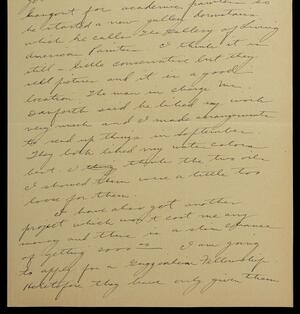 hangout for academic painters so
he started a new gallery downstairs
which he calls The Gallery of Living
American Painters I think it is
still a little conservative but they
sell pictures and it is a good
location. The man in charge Mr.
Danforth said he liked my work
very much and I made arrangements
to send up things in September
They both liked my water colors
best. I think the two oils
I showed them were a little too
loose for them.
I have also got another
project which won't cost me any
money and there is a slim chance
of getting 2000 I am going
to apply for a Guggenheim Fellowship.
Heretofore they have only given them